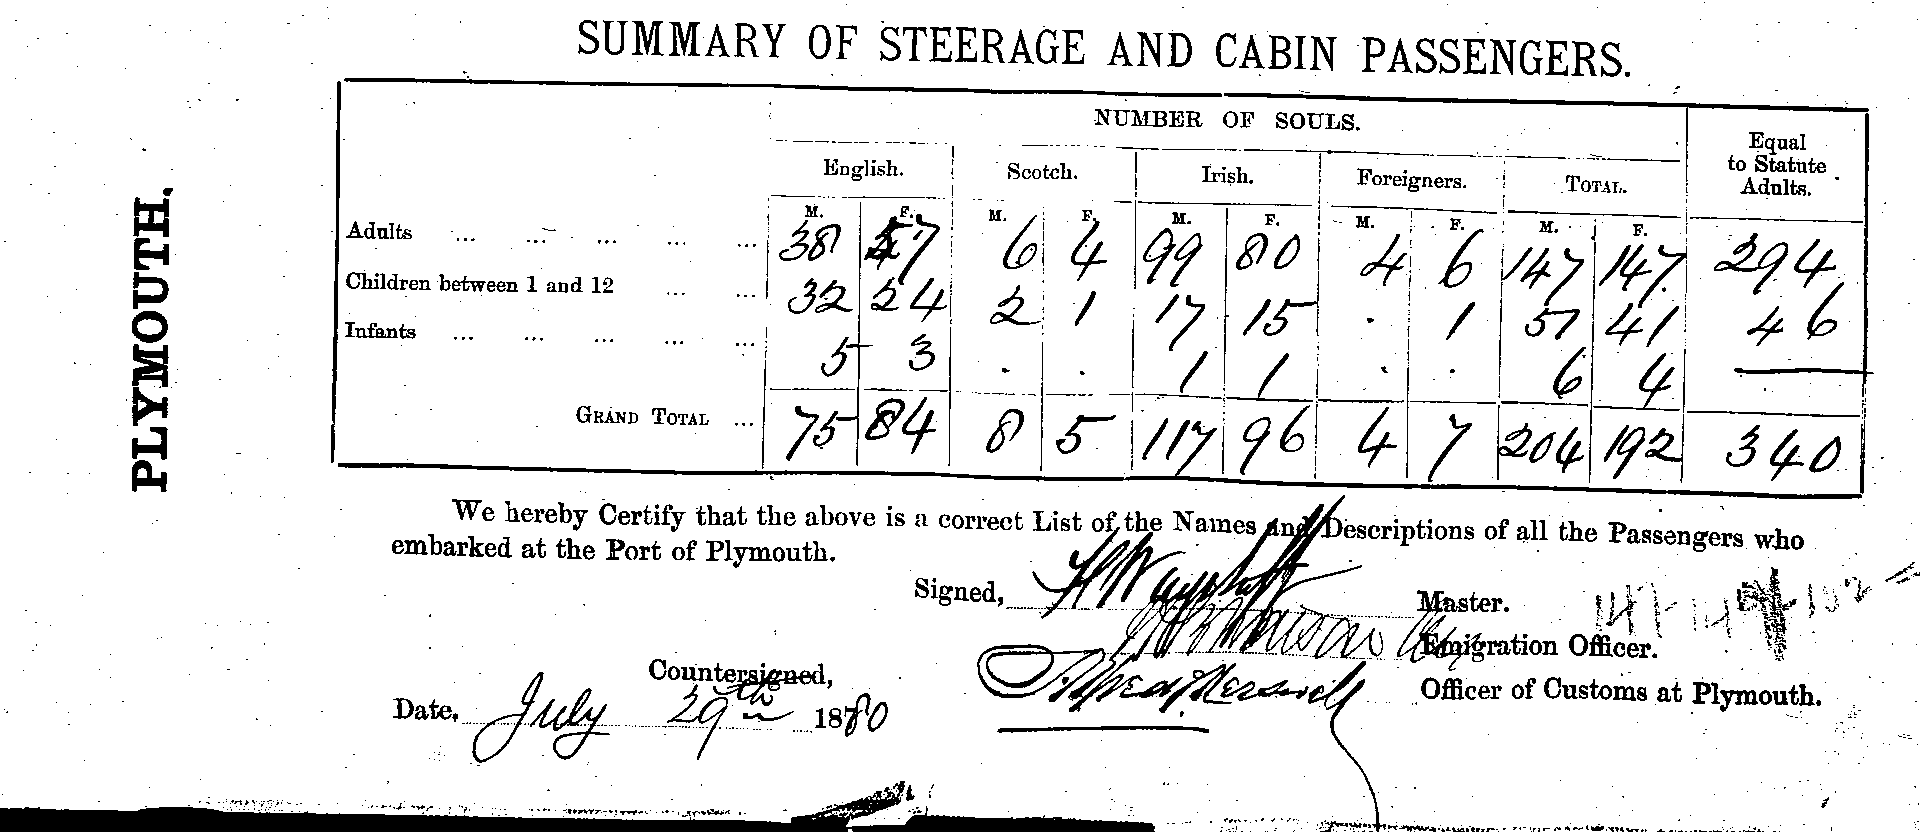 SUMMARY OF STEERAGE AND CABIN PASSENGERS.
PLYMOUTH.
NUMBER OF SOULS.
Equal to Statute Adults.
English. Scotch. Irish. Foreigners. TOTAL.
M. F. M. F. M. F. M. F. M. F.
Adults ... ... ... ... ... 38 57 6 4 99 80 4 6 147 147 294
Children between 1 and 12 ... ... 32 24 2 1 17 15 . 1 51 41 46
Infants ... ... ... ... ... 5 3 . . 1 1 . . 6 4 —
GRAND TOTAL ... 75 84 8 5 117 96 4 7 204 192 340
We hereby Certify that the above is a correct List of the Names and Descriptions of all the Passengers who
embarked at the Port of Plymouth.
Signed, Master.
Emigration Officer.
Countersigned, Officer of Customs at Plymouth.
Date, July 29th 1880